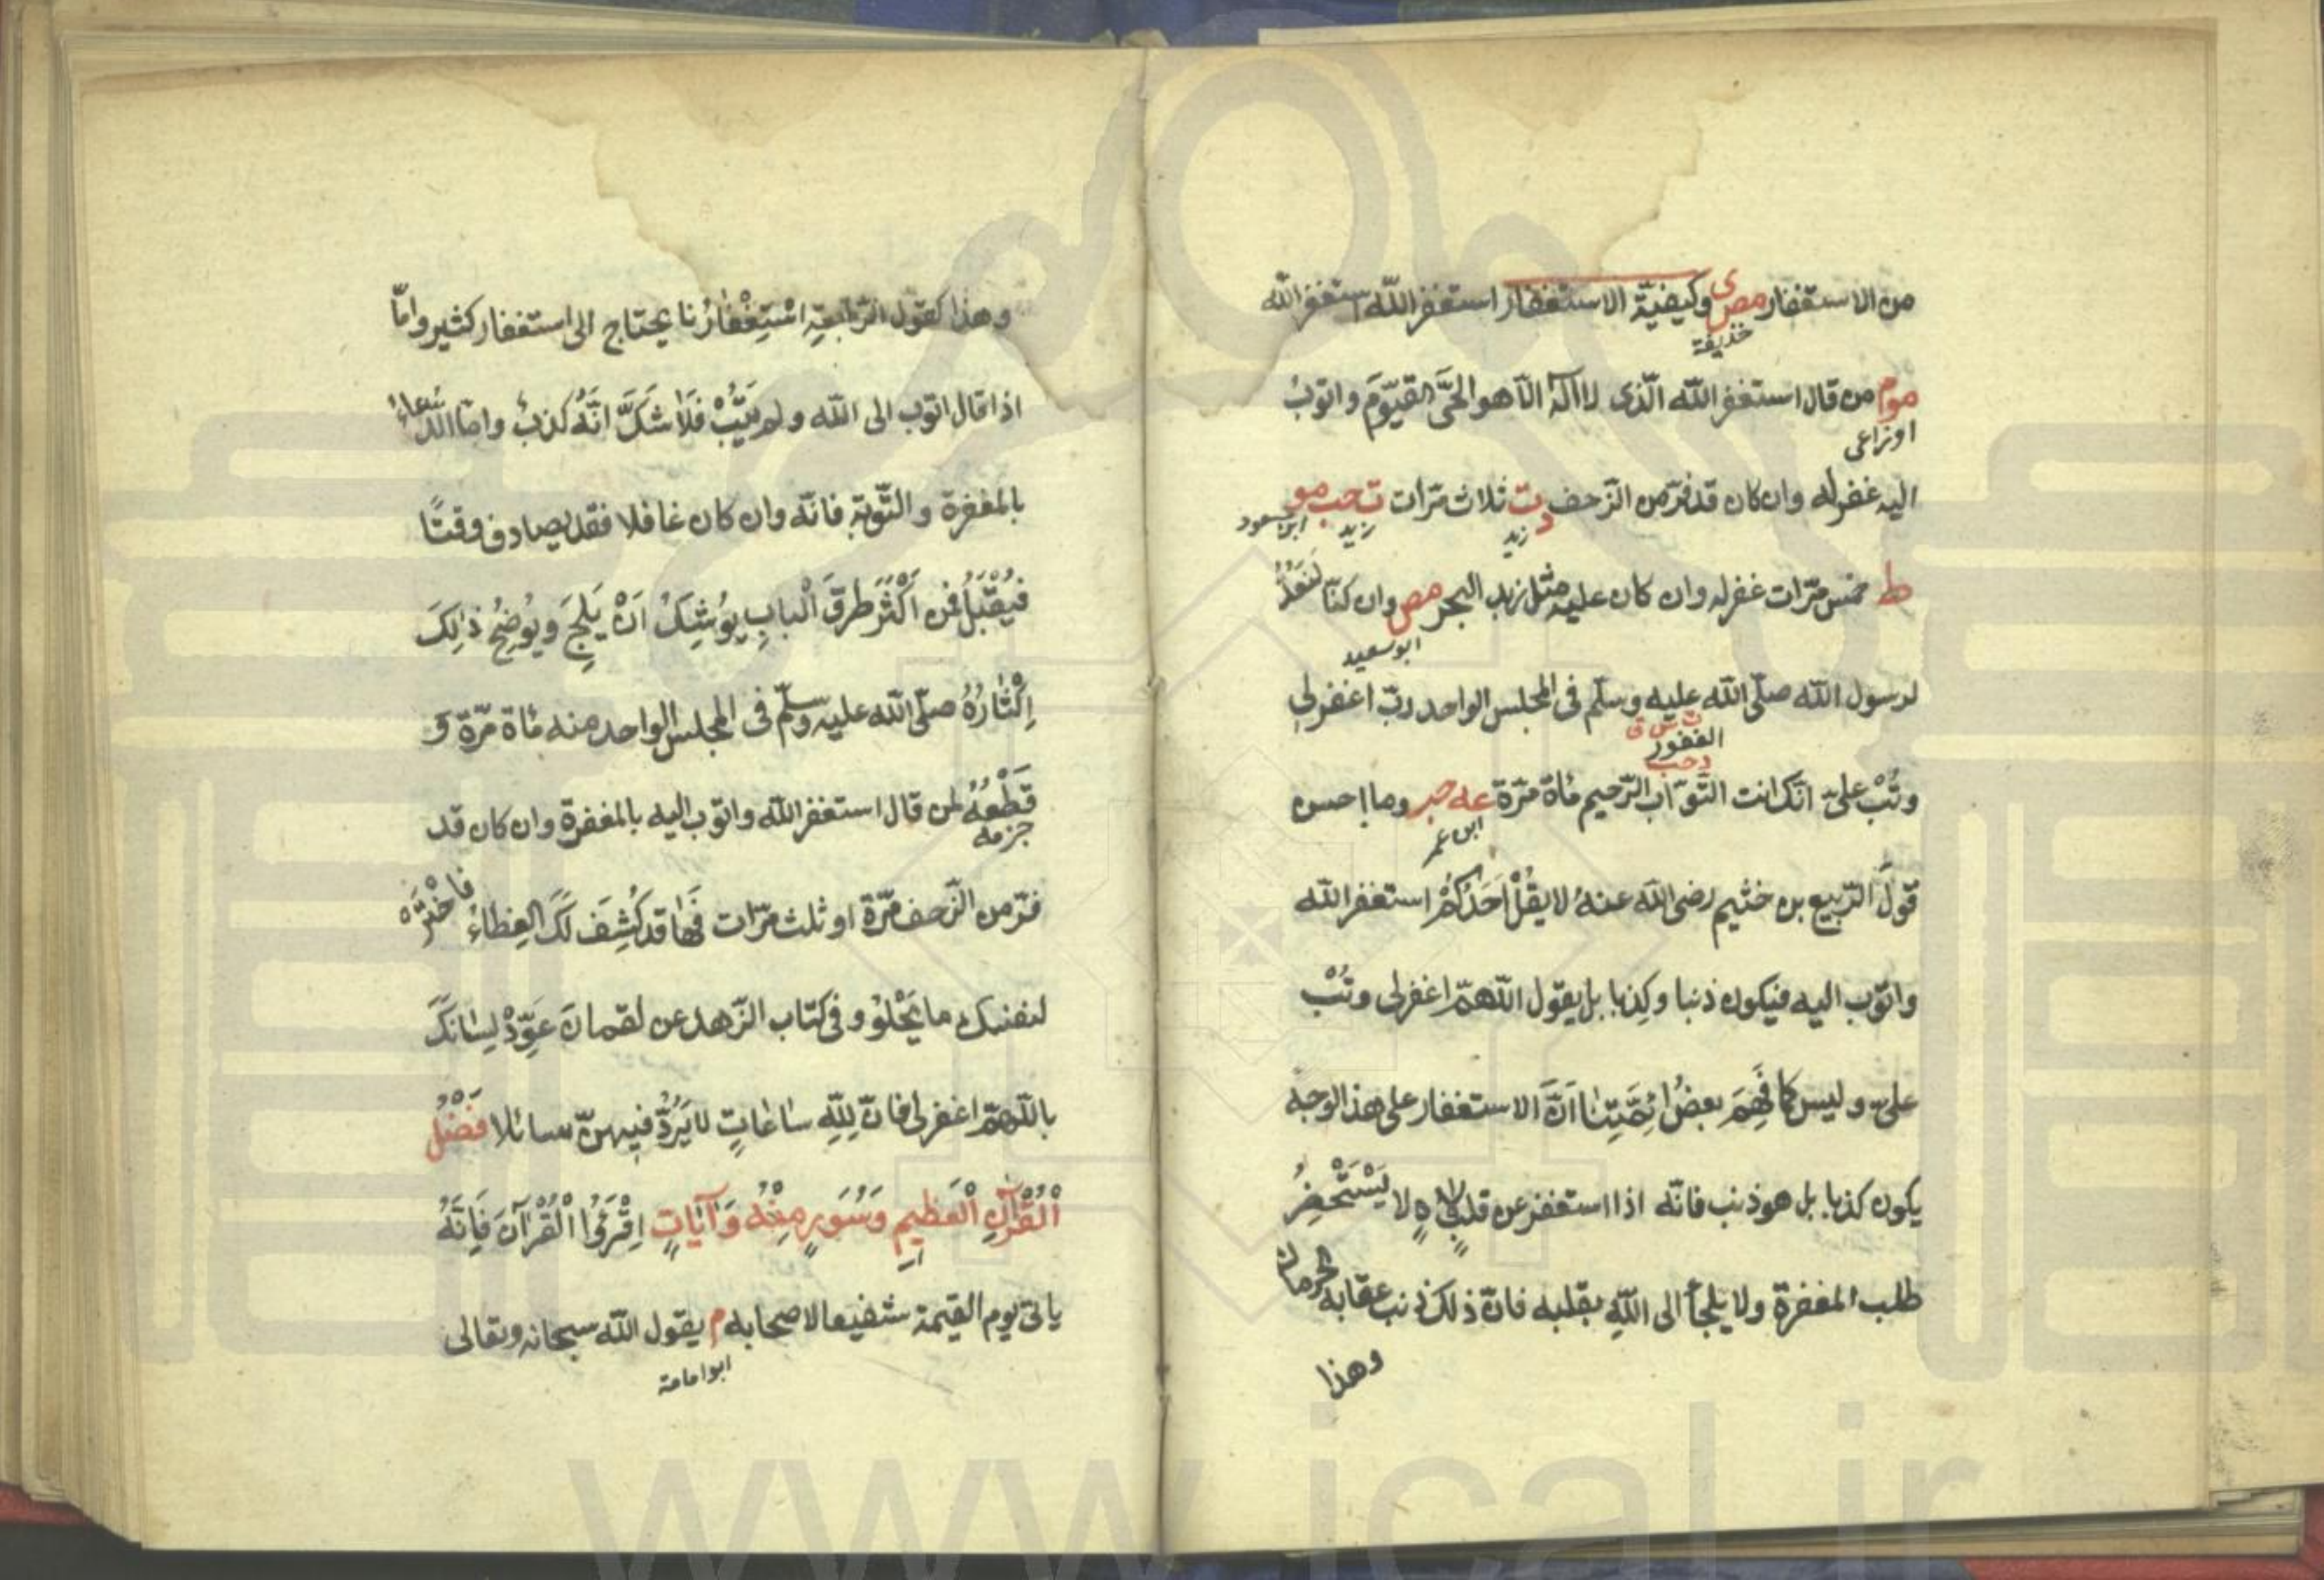 من الاستغفار مص ى وكيفيّة الاستغفار استغفر اللّه استغفر اللّه
حذيفة
موم من قال استغفر اللّه الّذى لا اله الّا هو الحَىَّ القيّومَ واتوبُ
اوزاعى
اليه غفر له وان كان قد فرّ من الزّحف د ت ثلاث مرّات ت حب مو
زيد زيد ابن مسعود
ط خمس مرّات غفر له وان كان عليه مثل زبد البحر مص وان كنّا لنَعُدُّ
ابو سعيد
لرسول اللّه صلّى اللّه عليه وسلّم فى المجلس الواحد ربّ اغفر لى
ت س ق
الغفور
د حب
وتُبْ علىّ انّك انت التّوّاب الرّحيم مائة مرّة عه حب وما احسن
ابن عمر
قولَ الرّبيع بن خثيم رضى اللّه عنهُ لا يقُلْ اَحَدُكُمْ استغفر اللّه
واتوب اليه فيكون ذنبا وكِذبا بل يقول اللّهمّ اغفر لى وتُبْ
علىّ وليس كما فَهِمَ بعضُ اَئِمَّتِنا اَنَّ الاستغفار على هذا الوجه
يكون كذبا بل هو ذنب فانّه اذا استغفر عن قلبٍ لاهٍ لا يَسْتَحْضِرُ
طلب المغفرة ولا يلجأ الى اللّهِ بقلبه فانّ ذلك ذنب عقابه الحرمان
وهذا
وهذا كقول الرّابعيّةِ اسْتِغْفَارُنا يحتاج الى استغفار كثير وامّا
اذا قال اتوب الى اللّه ولم يَتُبْ فَلَا شَكَّ انَّهُ كذبٌ وامّا الدّعاء
بالمغفرة والتّوبةِ فانّه وان كان غافلا فقد يصادف وقتًا
فيُقْبَلُ فمن اَكْثَرَ طرقَ الْبابِ يوُشِكُ اَنْ يَلِجَ ويُوضِحُ ذٰلِكَ
اِكْثارُهُ صلّى اللّه عليه وسلّم فى المجلس الواحد منه مائة مرّة وَ
قَطْعُهُ لمن قال استغفر اللّه واتوب اليه بالمغفرة وان كان قد
جزمه
فرّ من الزّحف مرّة او ثلث مرّات فَها قد كُشِفَ لَكَ الغِطاءُ فاخْتَرْ
لنفسك ما يَحْلُو وفى كتاب الزّهد عن لقمان عَوِّدْ لِسٰانَكَ
باللّهمّ اغفر لى فانّ لِلّهِ سٰاعٰاتٍ لا يَرُدُّ فيهنّ سائلا فَضْلُ
الْقُرْآنِ الْعَظِيمِ وَسُوَرٍ مِنْهُ وَآيٰاتٍ اِقْرَؤُا الْقُرْآنَ فَاِنَّهُ
ياتى يوم القيمة شفيعا لاصحابه م يقول اللّه سبحانه وتعالى
ابو امامة